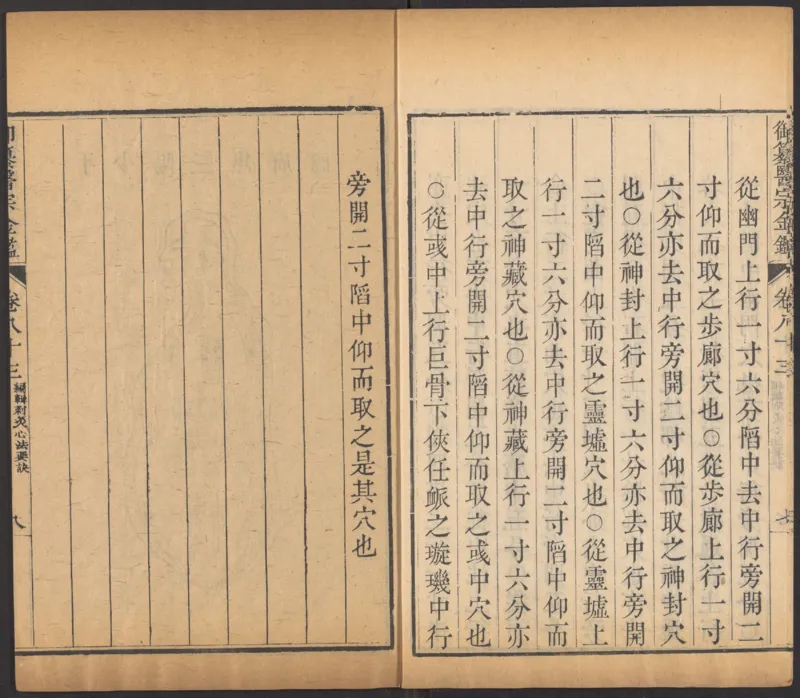 御纂醫宗金鑑
卷八十三
七
從幽門上行一寸六分䧟中去中行旁開二
寸仰而取之步廊穴也○從步廊上行一寸
六分亦去中行旁開二寸仰而取之神封穴
也○從神封上行一寸六分亦去中行旁開
二寸䧟中仰而取之靈墟穴也○從靈墟上
行一寸六分亦去中行旁開二寸䧟中仰而
取之神藏穴也○從神藏上行一寸六分亦
去中行旁開二寸䧟中仰而取之彧中穴也
○從彧中上行巨骨下俠任脈之璇璣中行
旁開二寸䧟中仰而取之是其穴也
御纂醫宗金鑑
卷八十三
編輯刺灸心法要訣
八